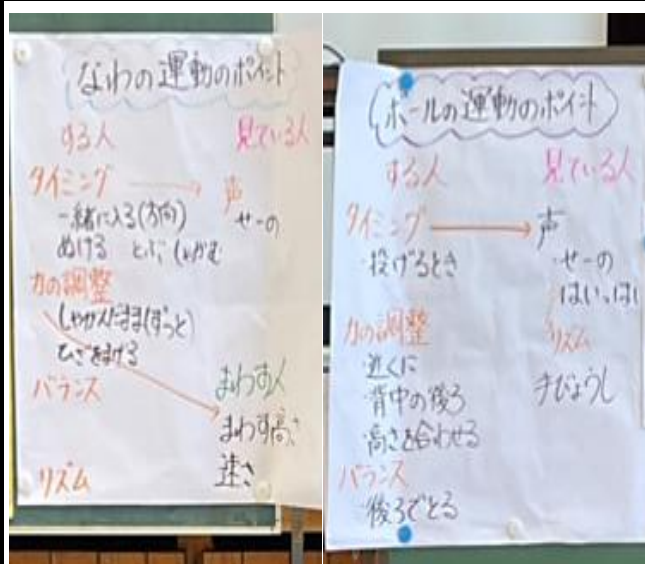 なわの運動のポイント
する人 見ている人
タイミング 声
一緒に入る(方向) せーの
ぬける とぶ しゃがむ
力の調整
しゃがんだまま(ずっと)
ひざをまげる
バランス まわす人
まわす高さ
リズム 速さ
ボールの運動のポイント
する人 見ている人
タイミング 声
・投げるとき ・せーの
はい、はい
力の調整 リズム
近くに 手びょうし
・背中の後ろ
・高さを合わせる
バランス
・後ろでとる